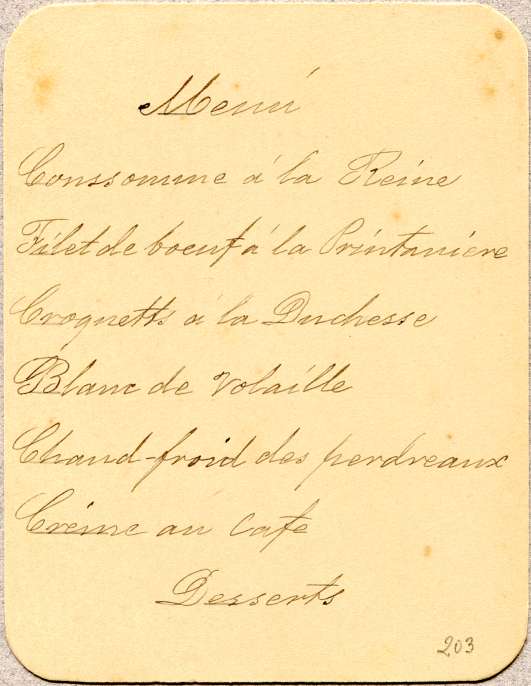 Menú
Conssomme á la Reine
Filet de boeuf á la Printaniere
Croquetts á la Duchesse
Blanc de Volaille
Chaud-froid des perdreaux
Créme au Café
Desserts
203